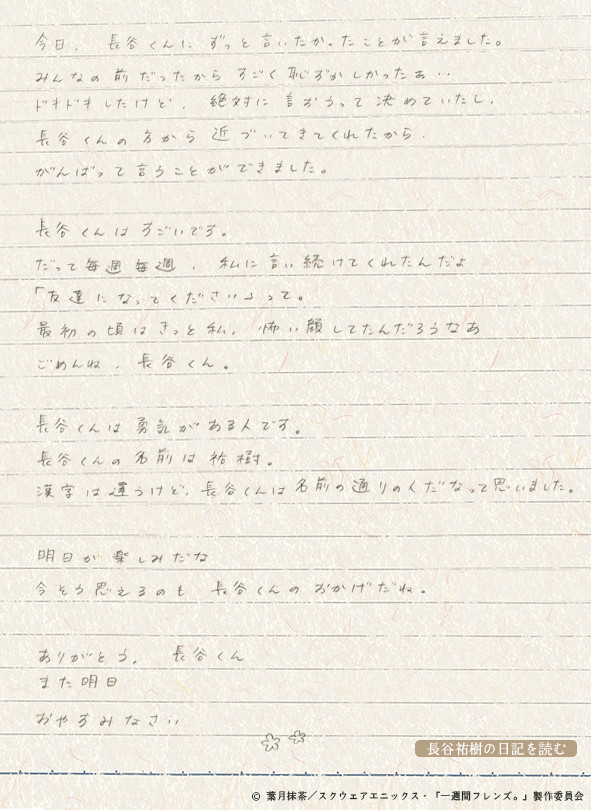 今日、長谷くんにずっと言いたかったことが言えました。
みんなの前だったからすごく恥ずかしかったぁ…
ドキドキしたけど、絶対に言おうって決めていたし、
長谷くんの方から近づいてきてくれたから、
がんばって言うことができました。
長谷くんはすごいです。
だって毎週毎週、私に言い続けてくれたんだよ
「友達になってください」って。
最初の頃はきっと私、怖い顔してたんだろうなあ
ごめんね、長谷くん。
長谷くんは勇気がある人です。
長谷くんの名前は祐樹。
漢字は違うけど、長谷くんは名前の通りの人だなって思いました。
明日が楽しみだな
今そう思えるのも長谷くんのおかげだね。
ありがとう、長谷くん
また明日
おやすみなさい
長谷祐樹の日記を読む
© 葉月抹茶／スクウェアエニックス・「一週間フレンズ。」製作委員会